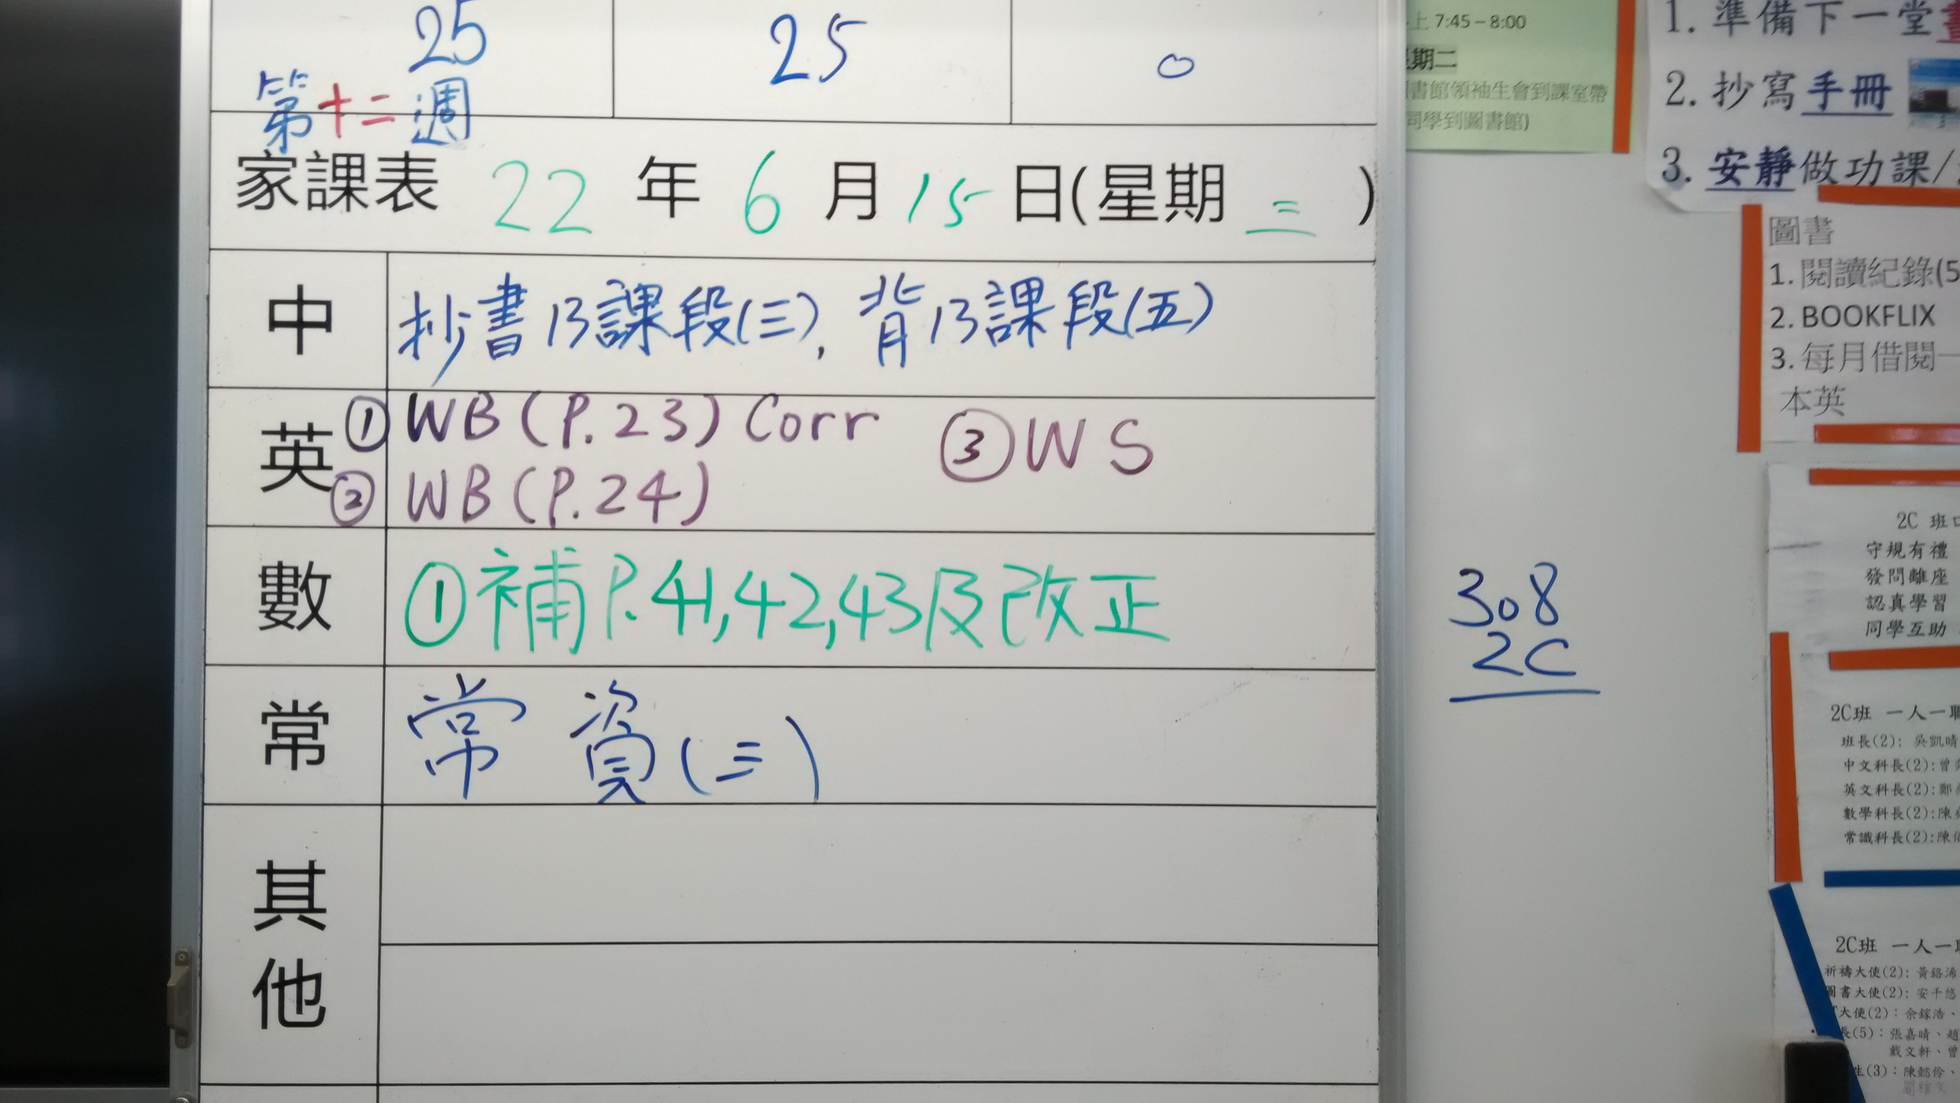 25 25 0
第十二週
家課表 22 年 6 月 15 日(星期 三 )
中 抄書13課段(三), 背13課段(五)
英 ① WB (P.23) Corr ③ WS
② WB (P.24)
數 ①補 P.41,42,43及改正
常 常 資(三)
其他
308
2C
上 7:45 – 8:00
期二
書館領袖生會到課室帶
同學到圖書館)
1. 準備下一堂
2. 抄寫手冊
3. 安靜做功課/
圖書
1. 閱讀紀錄(5
2. BOOKFLIX
3. 每月借閱一
本英
2C 班
守規有禮
發問離座
認真學習
同學互助
2C班 一人一
班長(2): 吳凱晴
中文科長(2):曾
英文科長(2):鄭
數學科長(2):陳
常識科長(2):陳
2C班 一人一
祈禱大使(2): 黃
圖書大使(2): 安千悠
大使(2): 余
長(5): 張嘉晴、趙
戴文軒、曾
生(3): 陳懿伶、